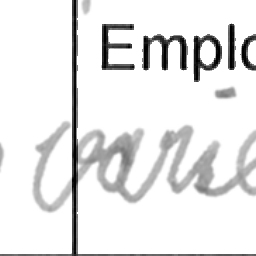 Emplo
varie